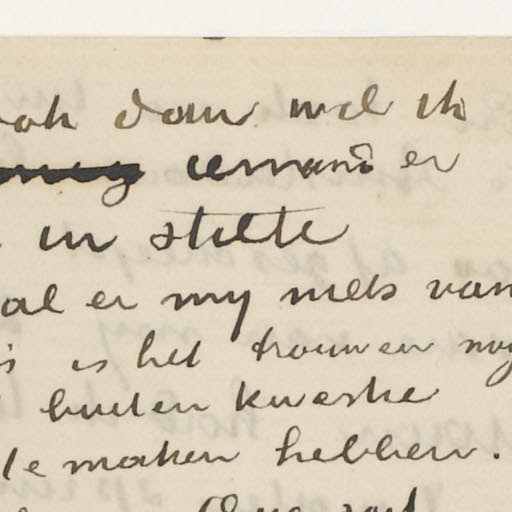 ook dan wil ik
iemand er
in stilte
zal er my niets van
is het trouwen my
buiten kwestie
te maken hebben.